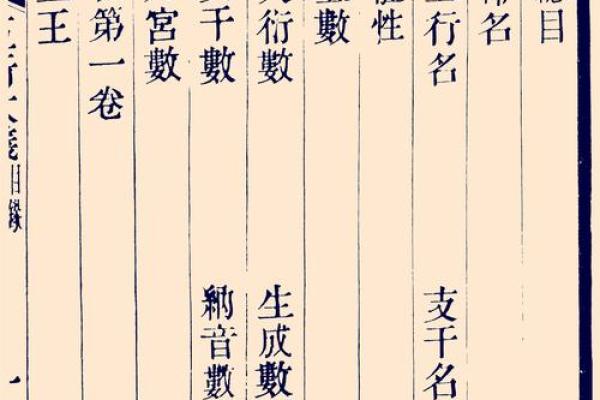 目
名
行名　支干名
性
數
衍數　生成數
干數　納音數
宮數
第一卷
王
行大義目錄　一